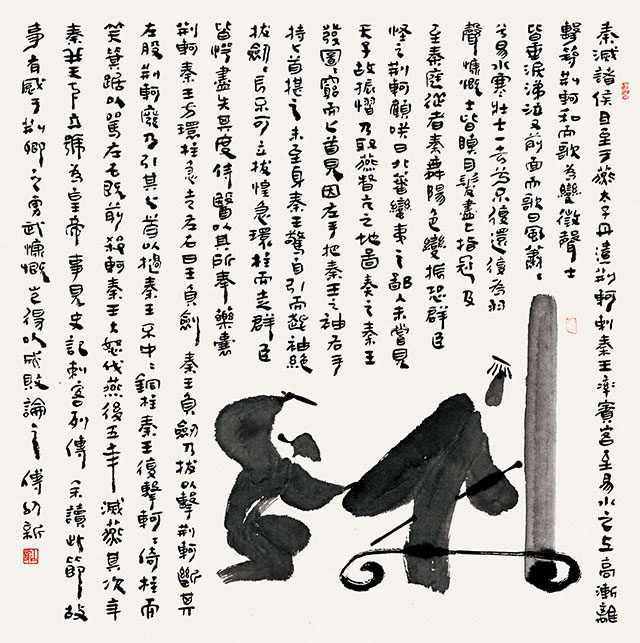 秦滅諸侯且至于燕太子丹遣荆軻刺秦王率賓客至易水之上高漸離
擊筑荆軻和而歌為變徵聲士
皆垂淚涕泣又前面而歌曰風蕭〻
兮易水寒壯士一去兮不復還復為羽
聲慷慨士皆瞋目髮盡上指冠及
至秦庭從者秦舞陽色變振恐群臣
怪之荆軻顧咲曰北蕃蠻夷之鄙人未嘗見
天子故振慴乃取燕督亢之地圖奏之秦王
發圖窮而匕首見因左手把秦王之袖右手
持匕首揕之未至身秦王驚自引而起袖絕
拔劍〻長不可立拔惶急環柱而走群臣
皆愕盡失其度侍醫以其所奉藥囊
荆軻秦王方環柱急走左右曰王負劍秦王負劍乃拔以擊荆軻斷其
左股荆軻廢乃引其匕首以擿秦王不中〻銅柱秦王復擊軻〻倚柱而
笑箕踞以駡左右既前殺軻秦王大怒伐燕後五年滅燕其次年
秦并天下立號為皇帝事見史記刺客列傳余讀此節故
事有感于荆卿之勇武慷慨豈得以成敗論之傅幼新